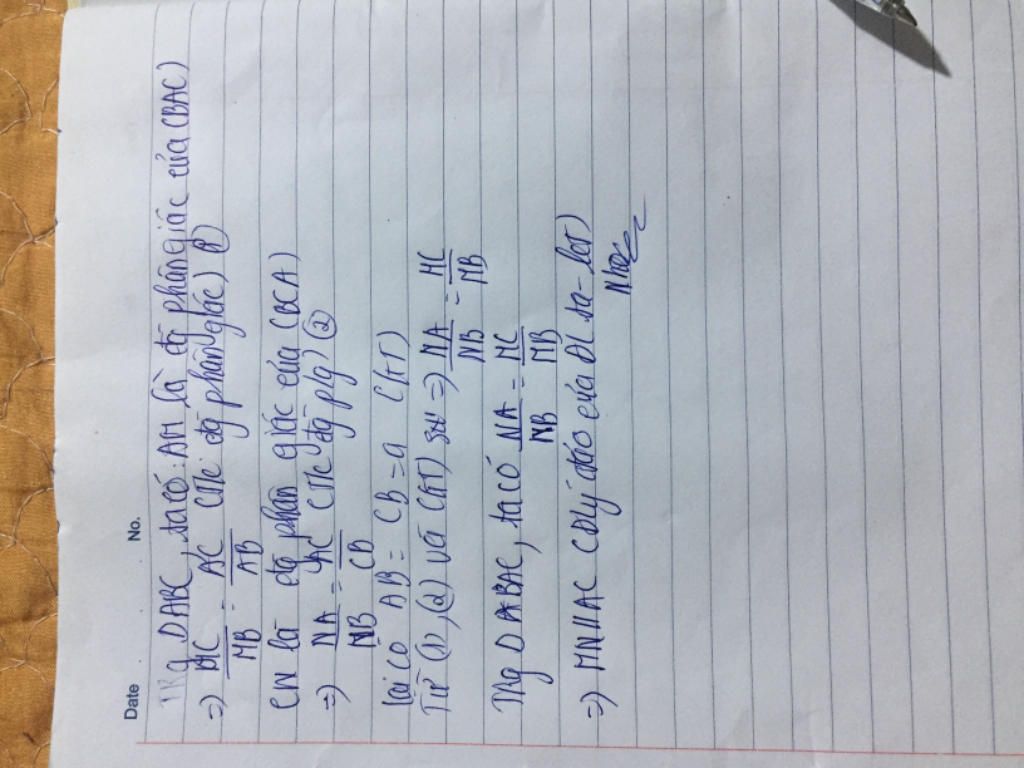 Date No.
TRg DABC, ta có: AM là đg phân giác của CBAC)
=> MC/MB = AC/AB CTlc đg phân giác) (1)
CN là đg phân giác của CBCA)
=> NA/NB = AC/CB CTlc đg p/g) (2)
lại có AB = CB = a C(GT)
Từ (1), (2) và C(GT) => NA/NB = MC/MB
Trg DABAC, ta có NA/NB = MC/MB
=> MN//AC CĐlý đảo của ĐL ta-let)